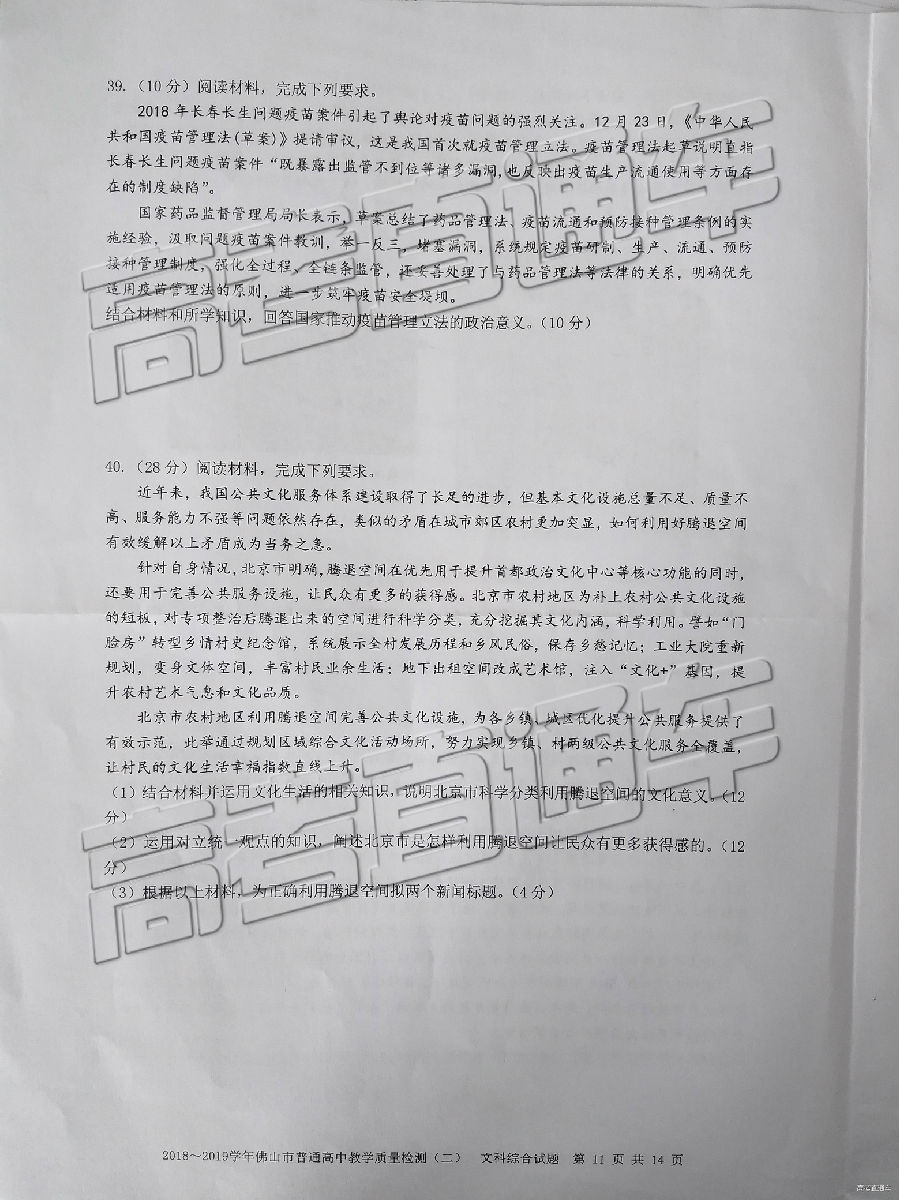 39.（10 分）阅读材料，完成下列要求。
2018 年长春长生问题疫苗案件引起了舆论对疫苗问题的强烈关注。12 月 23 日，《中华人民
共和国疫苗管理法(草案)》提请审议，这是我国首次就疫苗管理立法。疫苗管理法起草说明直指
长春长生问题疫苗案件“既暴露出监管不到位等诸多漏洞,也反映出疫苗生产流通使用等方面存
在的制度缺陷”。
国家药品监督管理局局长表示，草案总结了药品管理法、疫苗流通和预防接种管理条例的实
施经验，汲取问题疫苗案件教训，举一反三，堵塞漏洞，系统规定疫苗研制、生产、流通、预防
接种管理制度，强化全过程、全链条监管，还妥善处理了与药品管理法等法律的关系，明确优先
适用疫苗管理法的原则，进一步筑牢疫苗安全堤坝。
结合材料和所学知识，回答国家推动疫苗管理立法的政治意义。（10 分）
40.（28 分）阅读材料，完成下列要求。
近年来，我国公共文化服务体系建设取得了长足的进步，但基本文化设施总量不足、质量不
高、服务能力不强等问题依然存在，类似的矛盾在城市郊区农村更加突显，如何利用好腾退空间
有效缓解以上矛盾成为当务之急。
针对自身情况,北京市明确,腾退空间在优先用于提升首都政治文化中心等核心功能的同时，
还要用于完善公共服务设施，让民众有更多的获得感。北京市农村地区为补上农村公共文化设施
的短板，对专项整治后腾退出来的空间进行科学分类，充分挖掘其文化内涵，科学利用。譬如“门
脸房”转型乡情村史纪念馆，系统展示全村发展历程和乡风民俗，保存乡愁记忆；工业大院重新
规划，变身文体空间，丰富村民业余生活；地下出租空间改成艺术馆，注入“文化+”基因，提
升农村艺术气息和文化品质。
北京市农村地区利用腾退空间完善公共文化设施，为各乡镇、城区优化提升公共服务提供了
有效示范，此举通过规划区域综合文化活动场所，努力实现乡镇、村两级公共文化服务全覆盖，
让村民的文化生活幸福指数直线上升。
（1）结合材料并运用文化生活的相关知识，说明北京市科学分类利用腾退空间的文化意义。（12
分）
（2）运用对立统一观点的知识，阐述北京市是怎样利用腾退空间让民众有更多获得感的。（12
分）
（3）根据以上材料，为正确利用腾退空间拟两个新闻标题。（4 分）
高考直通车
高考直通车
2018～2019学年佛山市普通高中教学质量检测（二） 文科综合试题 第 11 页 共 14 页
高考直通车